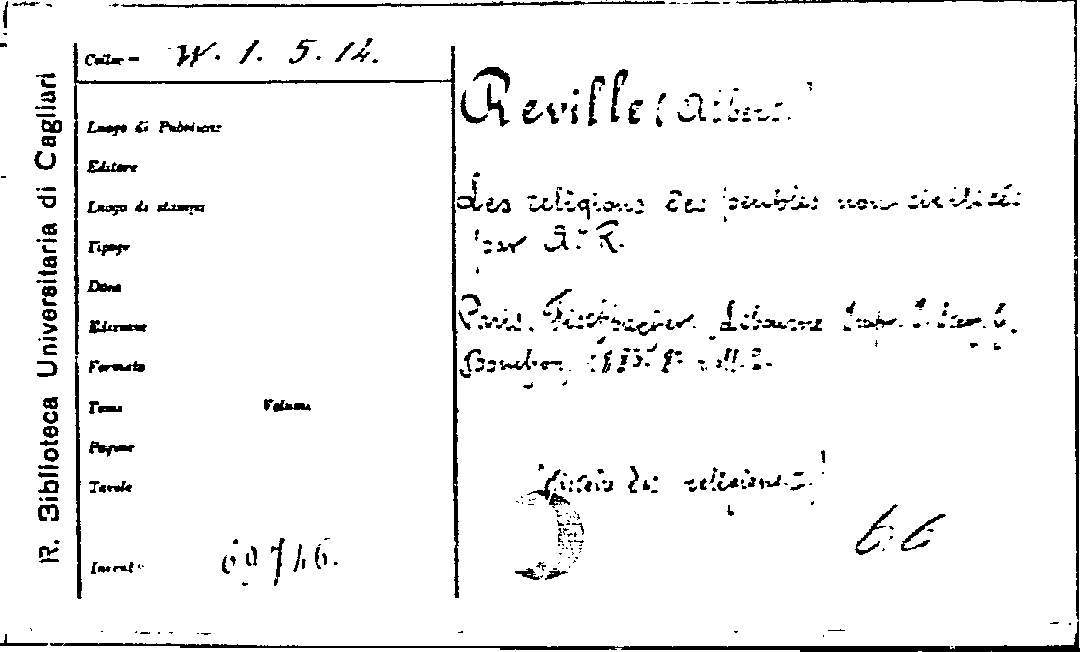 R. Biblioteca Universitaria di Cagliari
Colloc.— W. 1. 5. 14.
Luogo di Pubblicaz
Editore
Luogo di stampa
Tipogr
Data
Edizione
Formato
Tomi Volumi
Pagine
Tavole
Invent.
Reville (Albert)
Les religions des peuples non civilisés
par A. R.
Paris. Fischbacher. Libourne Imp.
vol. 2.
(Histoire des religions I.)